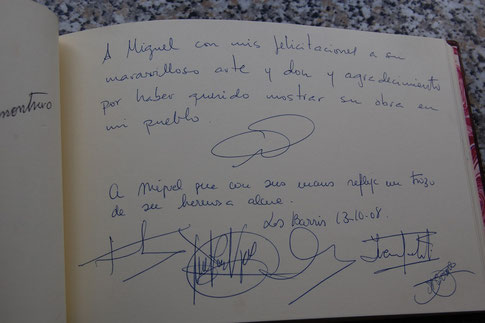 A Miguel con mis felicitaciones a su
maravilloso arte y don y agradecimiento
por haber querido mostrar su obra en
mi pueblo.
A Miguel que con sus manos refleja un trozo
de su hermosa alma.
Los Barrios 13-10-08.